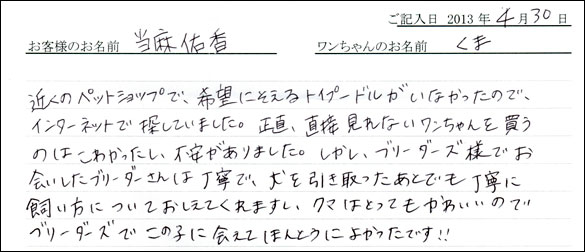 ご記入日 2013 年 4 月 30 日
お客様のお名前 当麻佑香 ワンちゃんのお名前 くま
近くのペットショップで、希望にそえるトイプードルがいなかったので、
インターネットで探していました。正直、直接見れないワンちゃんを買う
のはこわかったし、不安がありました。しかし、ブリーダーズ様でお
会いしたブリーダーさんは丁寧で、犬を引き取ったあとでも丁寧に
飼い方についておしえてくれますし、クマはとってもかわいいので
ブリーダーズでこの子に会えてほんとうによかったです!!